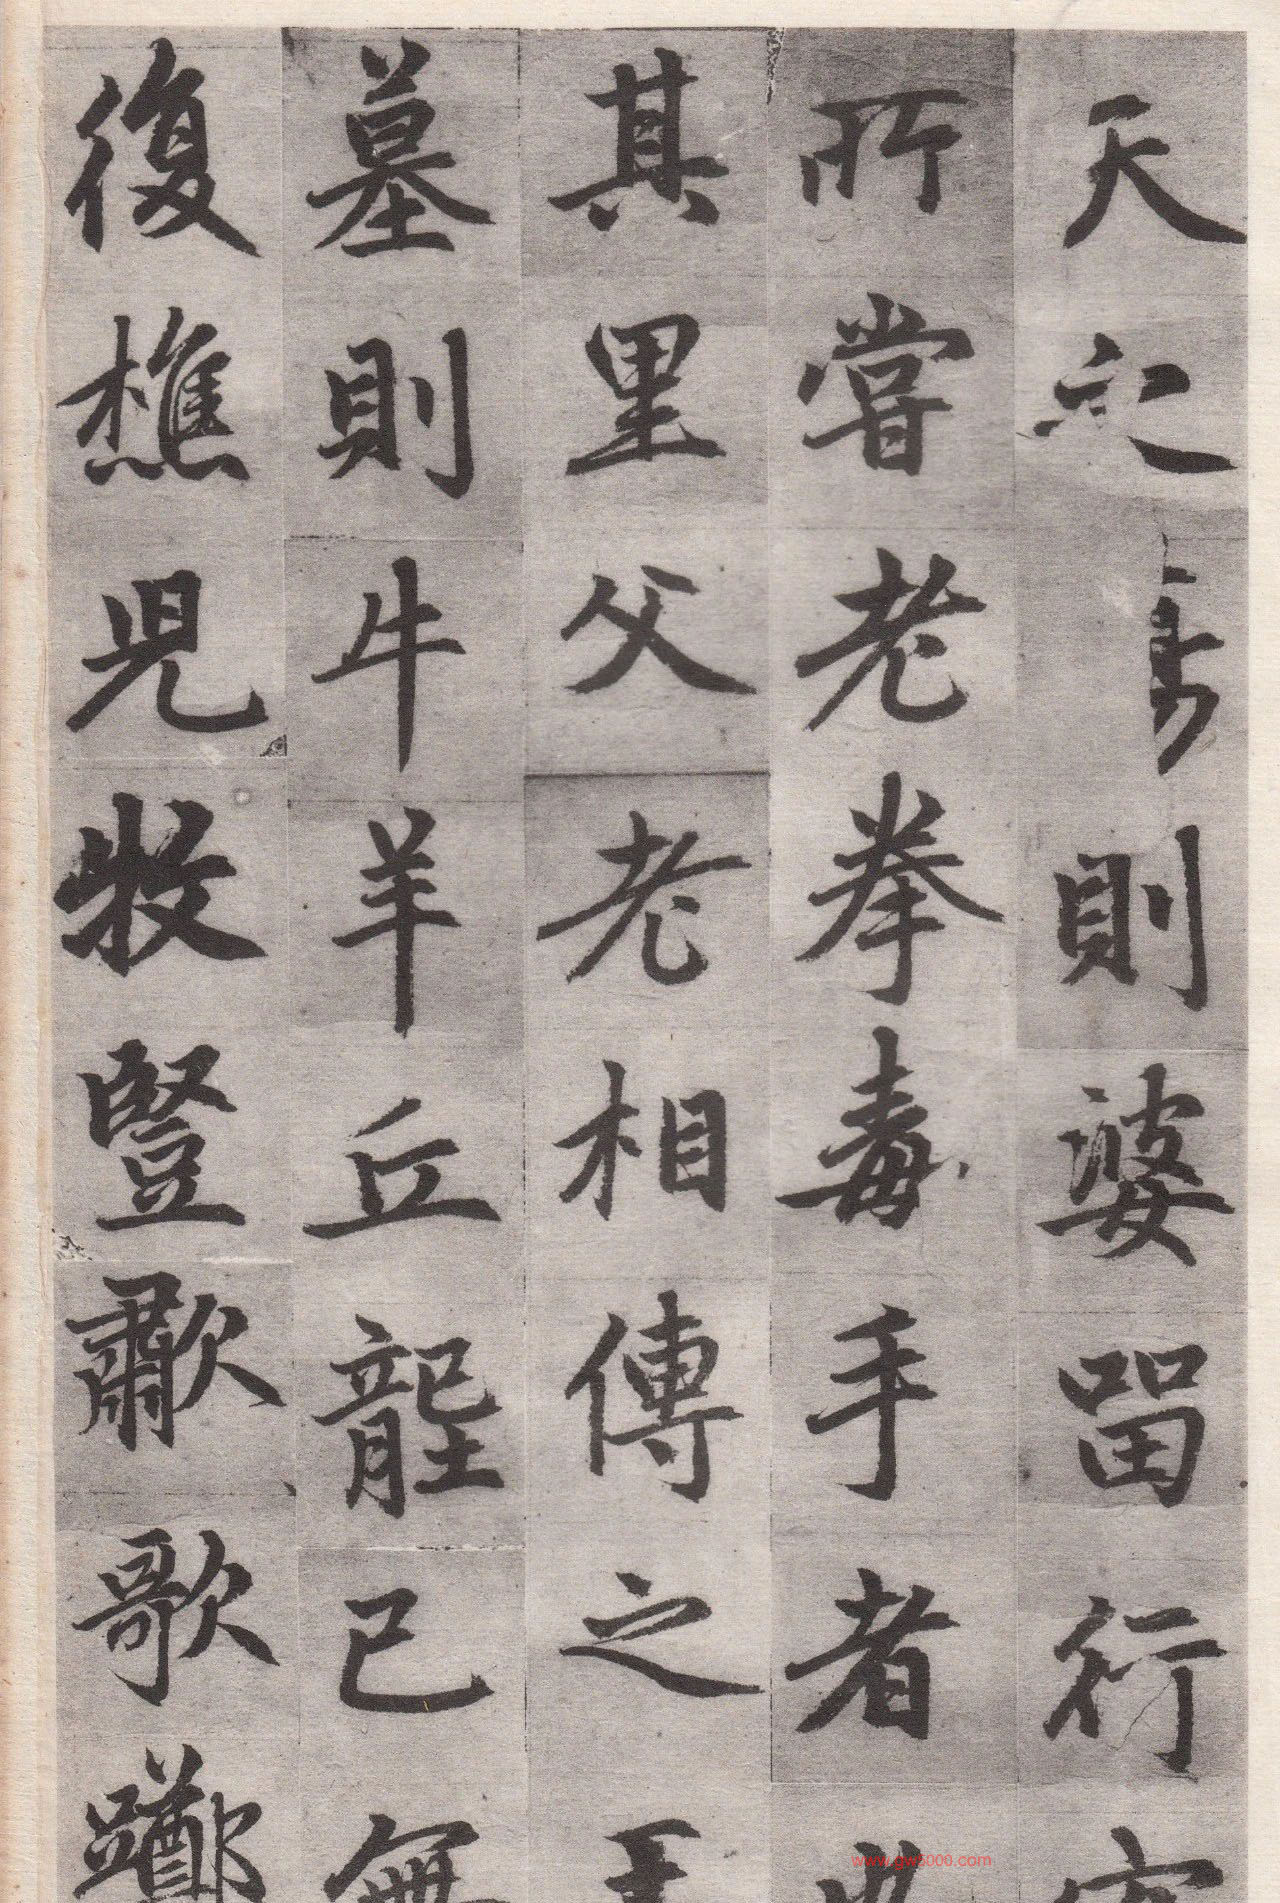 天之則婆留行
所嘗老拳毒手者
其里父老相傳之
墓則牛羊丘壟已無
復樵兒牧豎歗歌躑
www.gw5000.com